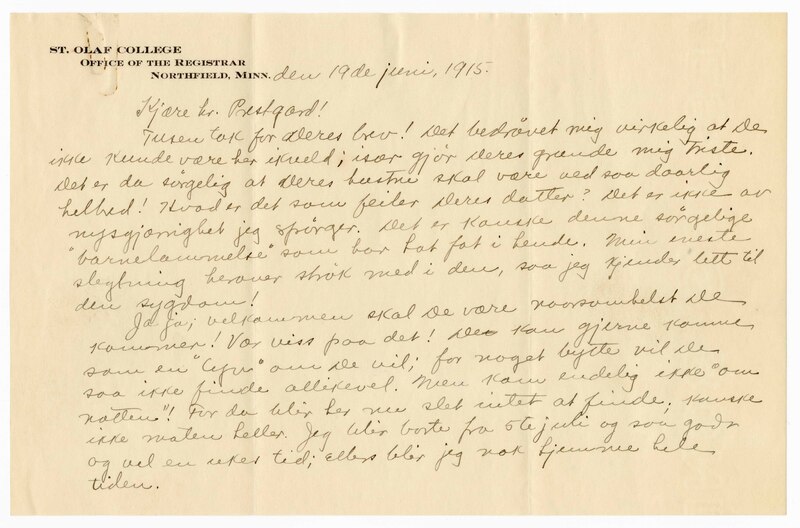 ST. OLAF COLLEGE
OFFICE OF THE REGISTRAR
NORTHFIELD, MINN. den 19de juni, 1915.
Kjære hr. Prestgard!
Tusen tak for Deres brev! Det bedrøvet mig virkelig at De
ikke kunde være her ikveld; især gjør Deres grunde mig triste.
Det er da sørgelig at Deres hustru skal være ved saa daarlig
helbred! Hvad er det som feiler Deres datter? Det er ikke av
nysgjærrighet jeg spørger. Det er kanske denne sørgelige
"barnelammelse" som har hat fat i hende. Min eneste
slegtning herover strøk med i den, saa jeg kjender litt til
den sygdom!
Ja ja; velkommen skal De være naarsomhelst De
kommer! Vær viss paa det! De kan gjerne komme
som en "tyv" om De vil; for noget bytte vil De
saa ikke finde allikevel. Men kom endelig ikke "om
natten"! For da blir her nu slet intet at finde; kanske
ikke maten heller. Jeg blir borte fra 6te juli og saa godt
og vel en ukes tid; ellers blir jeg nok hjemme hele
tiden.